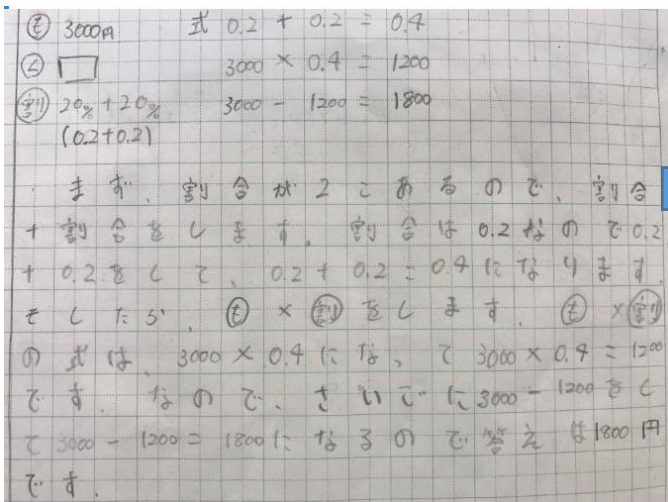 も 3000円 式 0.2 + 0.2 = 0.4
く □ 3000 × 0.4 = 1200
割 20% + 20% 3000 - 1200 = 1800
(0.2+0.2)
まず、割合が2こあるので、割合
+割合をします。割合は0.2なので0.2
+0.2をして、0.2+0.2=0.4になります。
そしたら、も×割をします。も×割
の式は、3000×0.4になって3000×0.4=1200
です。なので、さいごに3000-1200をし
て3000-1200=1800になるので答えは1800円
です。